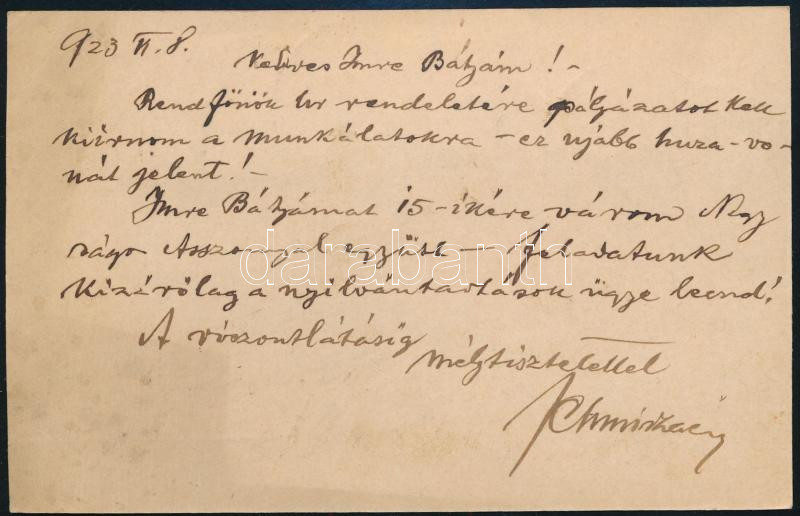 923 II. 8.
Kedves Imre Bátyám! -
Rendfőnök Ur rendeletére pályázatot kell
kiirnom a munkálatokra - ez ujabb huza-vo-
nát jelent! -
Imre Bátyámat 15-ikére várom Nagy
ságos Asszonnyal együtt - feladatunk
kizárólag a nyilvántartások ügye leend!
A viszontlátásig
mély tisztelettel
darabanth